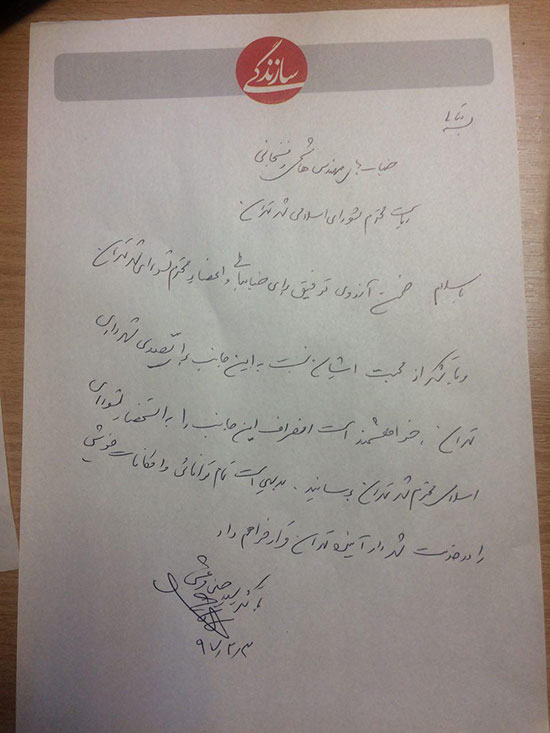 سازندگی
بسمه تعالی
جناب آقای مهندس هاشمی رفسنجانی
ریاست محترم شورای اسلامی شهر تهران
با سلام ضمن آرزوی توفیق برای جنابعالی و اعضاء محترم شورای شهر تهران
و با تشکر از محبت ایشان نسبت به این جانب برای تصدی شهرداری
تهران، خواهشمند است انصراف این جانب را به استحضار شورای
اسلامی محترم شهر تهران برسانید. بدیهی است تمام توانائی و امکانات خویش
را در خدمت شهردار آینده تهران قرار خواهم داد
با تشکر سید حسین مرعشی
۹۷/۲/۳